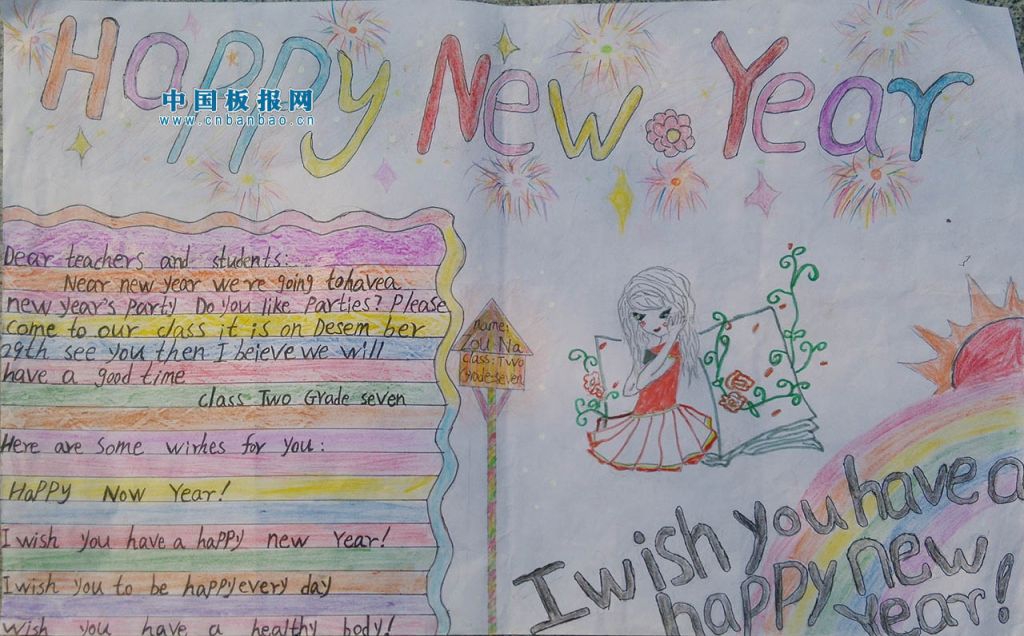 Happy New Year
中国板报网
www.cnbanbao.cn
Dear teachers and students:
Near new year we're going tohavea
new year's Party Do you like Parties? Please
come to our class it is on Desem ber
29th see you then I beieve we will
have a good time
class Two Grade seven
Here are some wirhes for you:
HaPPy Now Year!
I wish you have a haPPy new Year!
I wish you to be happyevery day
wish you have a healthy body!
name:
Zou Na
class: Two
Grade:seven
I wish you have a
happy new
year!